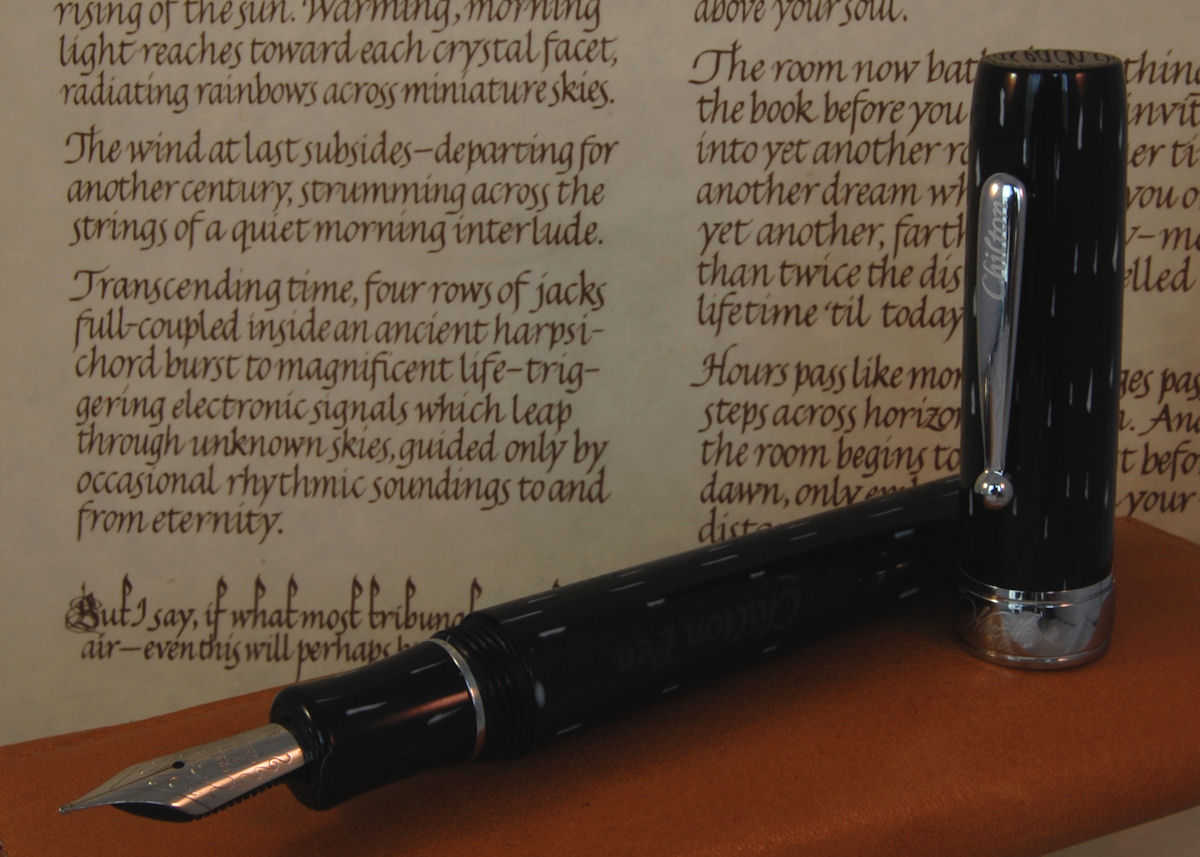 rising of the sun. Warming, morning
light reaches toward each crystal facet,
radiating rainbows across miniature skies.
The wind at last subsides—departing for
another century, strumming across the
strings of a quiet morning interlude.
Transcending time, four rows of jacks
full-coupled inside an ancient harpsi-
chord burst to magnificent life—trig-
gering electronic signals which leap
through unknown skies, guided only by
occasional rhythmic soundings to and
from eternity.
But I say, if what most tribunal
air—even this will perhaps
above your soul.
The room now bat thing
the book before you invit
into yet another er ti
another dream wh you o
yet another, farth y—m
than twice the dis elled
lifetime 'til today
Hours pass like mo ges pas
steps across horizo n. And
the room begins to t befo
dawn, only your
dista
Chilton
Chilton Pen